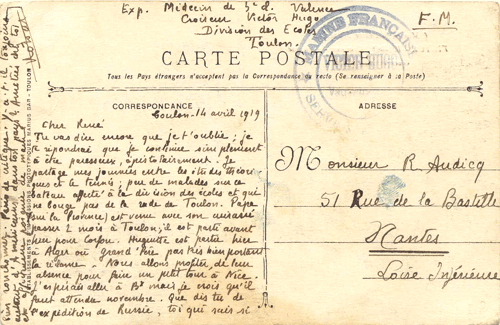 Exp. Médecin de 3e cl. Valence
Croiseur Victor Hugo
Division des Ecoles
Toulon.
F.M.
MARINE FRANÇAISE
CARTE POSTALE
Tous les Pays étrangers n'acceptent pas la Correspondance au recto (Se renseigner à la Poste)
CORRESPONDANCE
ADRESSE
Toulon - 14 avril 1919
Cher René
Tu vas dire encore que je t'oublie ; je
te répondrai que je continue simplement
à être paresseux, épistolairement. Je
partage mes journées entre les études
et le tennis ; peu de malades sur ce
bateau affecté à la division des écoles et qui
ne bouge pas de la rade de Toulon. Papa
(sur la Provence) est venu avec son cuirassé
passer 2 mois à Toulon ; il est parti avant
hier pour Corfou. Huguette est partie hier
à Alger où grand'père pas très bien portant
la réclame - Nous allons profiter de leur
absence pour faire un petit tour à Nice.
J'espérais aller à Bx mais je crois qu'il
faut attendre novembre. Que dis-tu de
l'expédition de Russie, toi que suis si
Monsieur R. Audicq
51 Rue de la Bastille
Nantes
Loire Inférieure